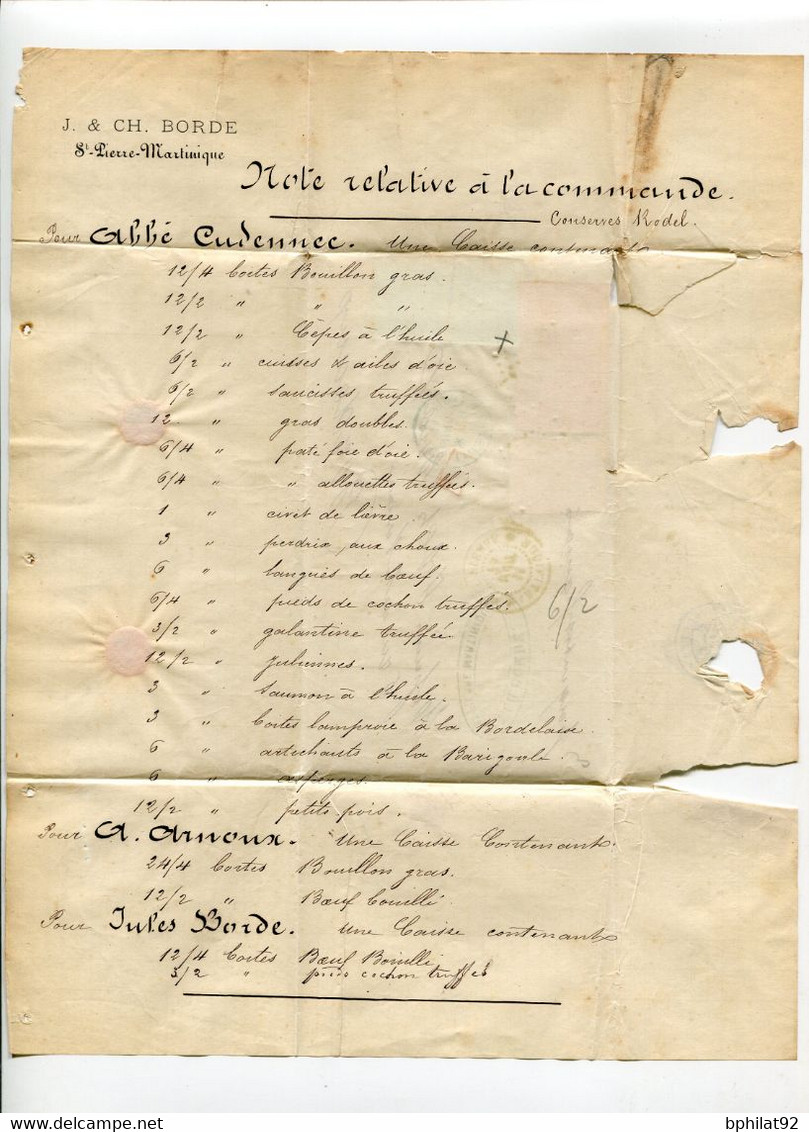 J. & CH. BORDE
St-Pierre-Martinique
Note relative à la commande.
Conserves Rodel.
Pour Abbé Cudennec. Une Caisse contenant
12/4 boites Bouillon gras.
12/2 " " "
12/2 " Cèpes à l'huile
6/2 " cuisses & ailes d'oie
6/2 " saucisses truffées.
12 " gras doubles.
6/4 " paté foie d'oie.
6/4 " " allouettes truffés.
1 " civet de lièvre
3 " perdrix aux choux.
6 " langues de bœuf.
6/4 " pieds de cochon truffés. 6/2
3/2 " galantine truffée.
12/2 " Juliennes.
3 " saumon à l'huile.
3 " boites lamproie à la Bordelaise.
6 " artichauts à la Barigoule.
6 " asperges.
12/2 " petits pois.
Pour A. Arnoux. Une Caisse Contenant.
24/4 boites Bouillon gras.
12/2 " Bœuf bouilli
Pour Jules Borde. Une Caisse contenant
12/4 boites Bœuf Bouilli
3/2 " pieds cochon truffés
bphilat92